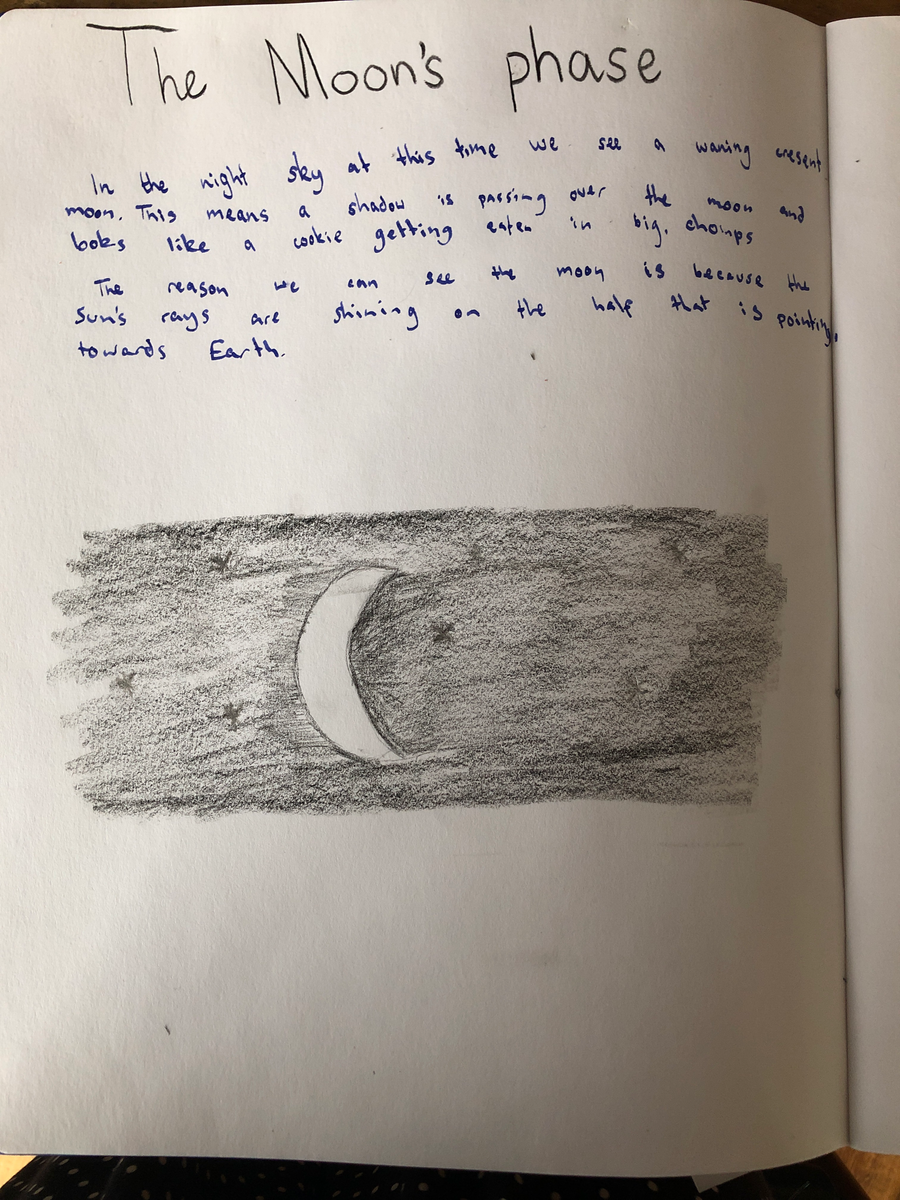 The Moon's phase
In the night sky at this time we see a waning cresent
moon. This means a shadow is passing over the moon and
looks like a cookie getting eaten in big, chomps
The reason we can see the moon is because the
Sun's rays are shining on the half that is pointing,
towards Earth.